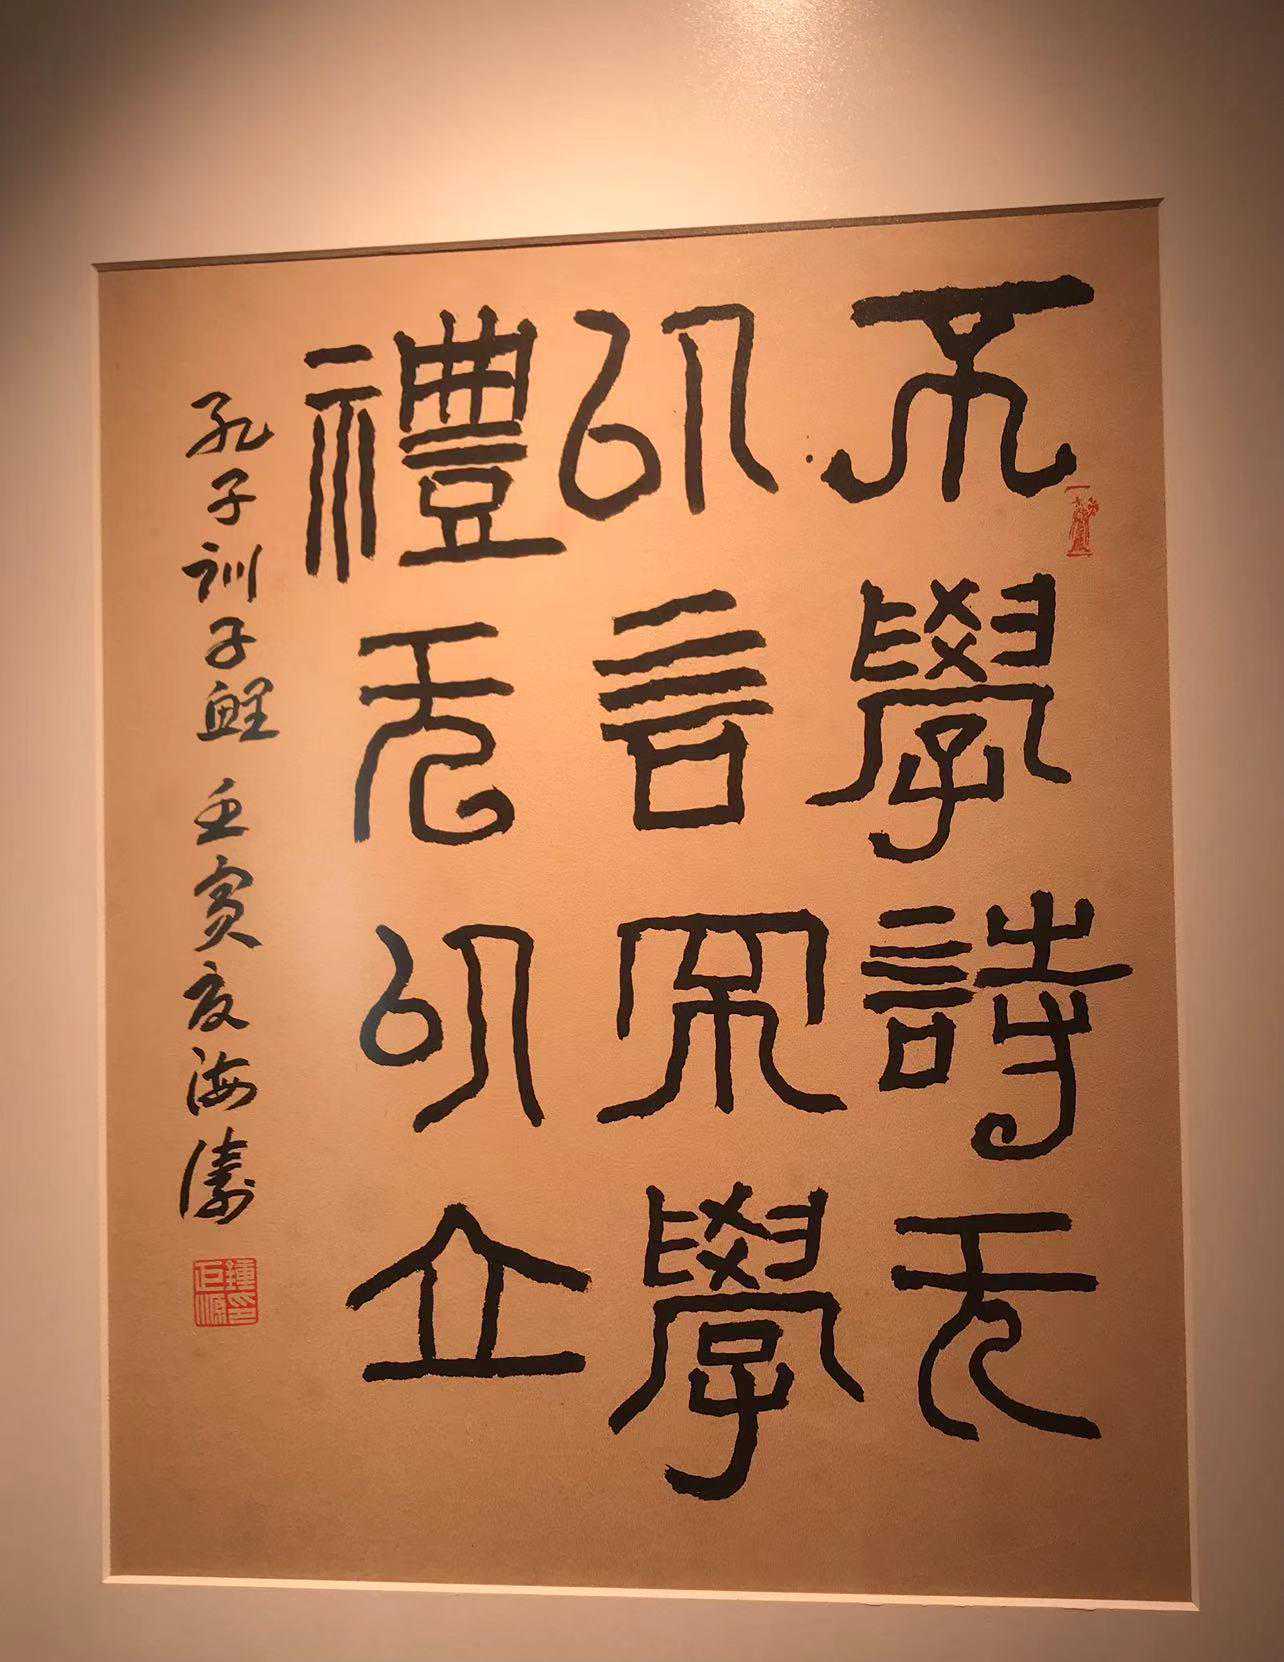 不學詩无
以言不學
禮无以立
孔子訓子鯉 壬寅夏海濤